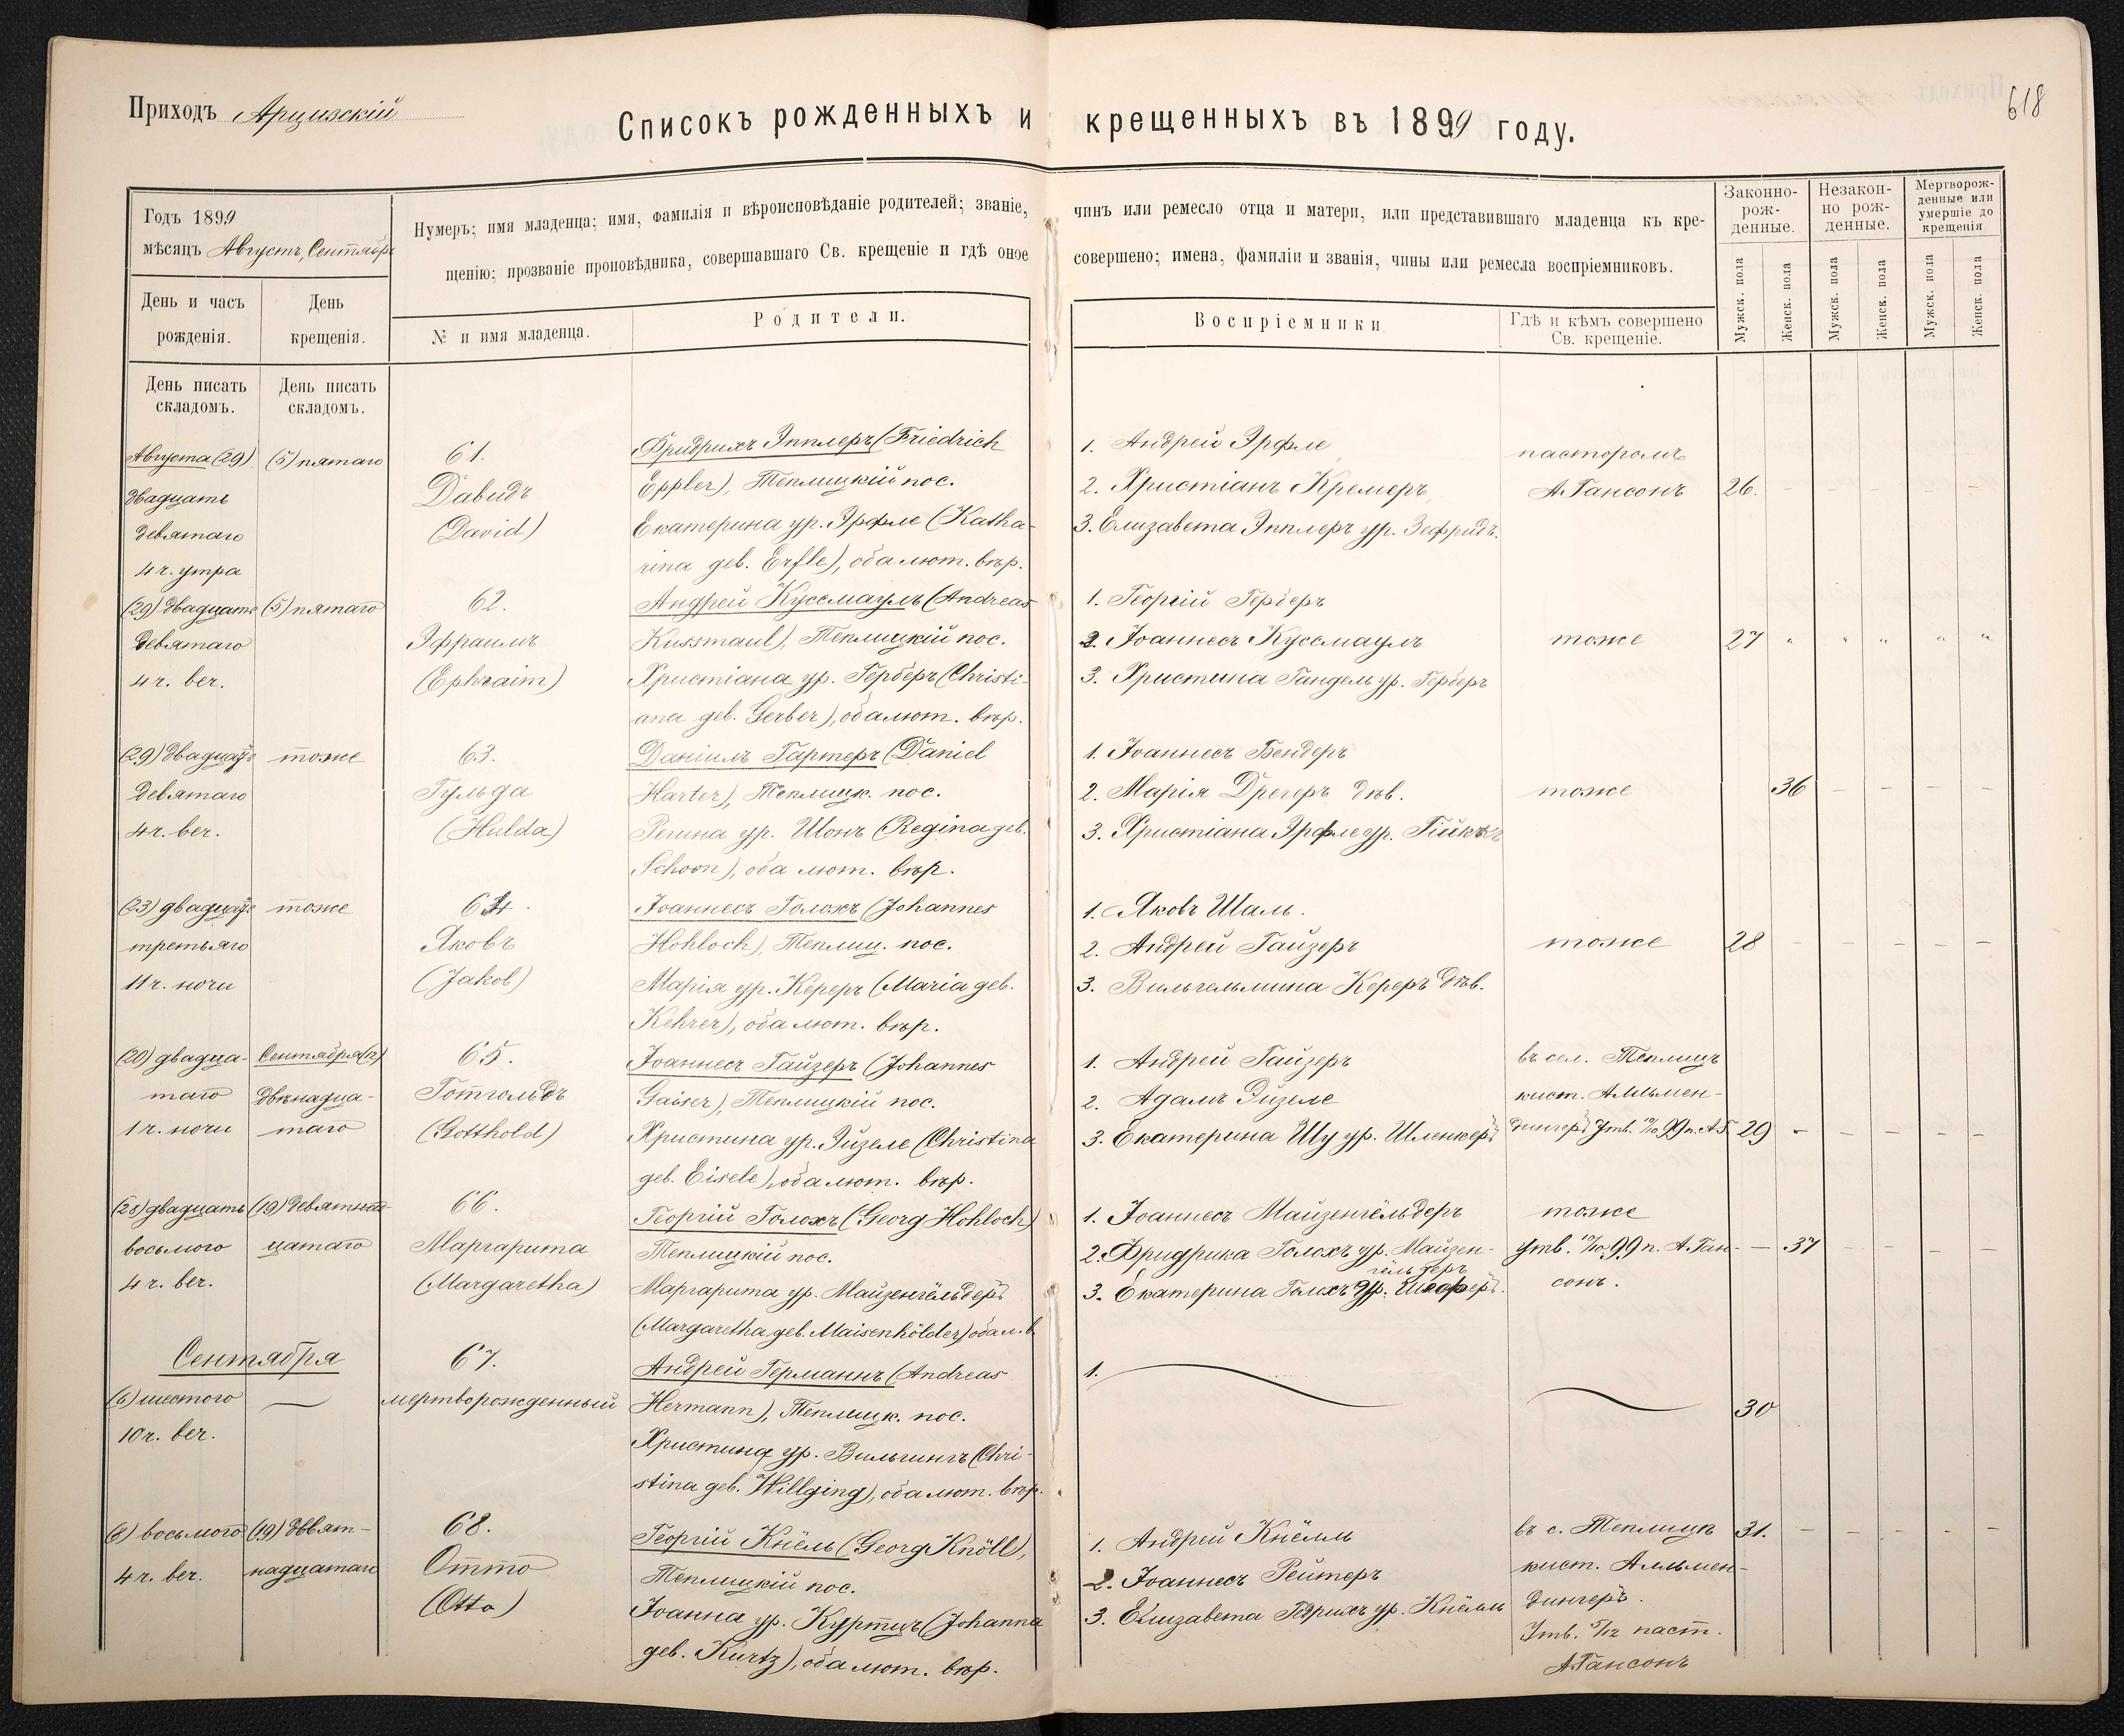 Приходъ Арцизскій
Списокъ рожденныхъ и крещенныхъ въ 1899 году.
618
Годъ 1899
мѣсяцъ Августъ, Сентябрь
Нумеръ; имя младенца; имя, фамилія и вѣроисповѣданіе родителей; званіе, чинъ или ремесло отца и матери, или представившаго младенца къ кре-
щенію; прозваніе проповѣдника, совершавшаго Св. крещеніе и гдѣ оное совершено; имена, фамиліи и званія, чины или ремесла воспріемниковъ.
Законно-
рож-
денные.
Незакон-
но рож-
денные.
Мертворож-
денные или
умершіе до
крещенія
День и часъ
рожденія.
День
крещенія.
№ и имя младенца.
Родители.
Воспріемники
Гдѣ и кѣмъ совершено
Св. крещеніе.
Мужск. пола
Женск. пола
Мужск. пола
Женск. пола
Мужск. пола
Женск. пола
День писать
складомъ.
День писать
складомъ.
Августа (29)
двадцать
девятаго
4 ч. утра
(5) пятаго
61.
Давидъ
(David)
Фридрихъ Эпплеръ (Friedrich
Eppler), Теплицкій пос.
Екатерина ур. Эрфле (Katha-
rina geb. Erfle), оба лют. вѣр.
1. Андрей Эрфле
2. Христіанъ Кремеръ
3. Елизавета Эпплеръ ур. Зефридъ.
пасторомъ
А. Гансонъ
26. – – – – –
(29) двадцать
девятаго
4 ч. веч.
(5) пятаго
62.
Эфраимъ
(Ephraim)
Андрей Куссмауль (Andreas
Kussmaul), Теплицкій пос.
Христіана ур. Герберъ (Christi-
ana geb. Gerber), оба лют. вѣр.
1. Георгій Герберъ
2. Іоаннесъ Куссмауль
3. Христина Гандель ур. Герберъ
тоже
27 " " " " "
(29) двадцать
девятаго
4 ч. веч.
тоже
63.
Гульда
(Hulda)
Даніилъ Гартеръ (Daniel
Harter), Теплицк. пос.
Регина ур. Шонъ (Regina geb.
Schoon), оба лют. вѣр.
1. Іоаннесъ Бендеръ
2. Марія Дрегеръ дѣв.
3. Христіана Эрфле ур.
тоже
36 – – – –
(23) двадцать
третьяго
11 ч. ночи
тоже
64.
Яковъ
(Jakob)
Іоаннесъ Голохъ (Johannes
Hohloch), Теплиц. пос.
Марія ур. Кереръ (Maria geb.
Kehrer), оба лют. вѣр.
1. Яковъ Шаль.
2. Андрей Гайзеръ
3. Вильгельмина Кереръ дѣв.
тоже
28 – – – – –
(20) двадца-
таго
1 ч. ночи
Сентября (12)
двѣнадца-
таго
65.
Готтольдъ
(Gotthold)
Іоаннесъ Гайзеръ (Johannes
Gaiser), Теплицкій пос.
Христина ур. Эйзеле (Christina
geb. Eisele), оба лют. вѣр.
1. Андрей Гайзеръ
2. Адамъ Эйзеле
3. Екатерина Шу ур. Шленкеръ
въ сел. Теплицъ
кист. Алльмен-
дингеръ Утв. 99 п. А.Г.
29 – – – – –
(28) двадцать
восьмого
4 ч. веч.
(19) девятнад-
цатаго
66.
Маргарита
(Margaretha)
Георгій Голохъ (Georg Hohloch)
Теплицкій пос.
Маргарита ур. Майзенгёльдеръ
(Margaretha geb. Maisenhölder) оба л. в.
1. Іоаннесъ Майзенгёльдеръ
2. Фридрика Голохъ ур. Майзен-
гёльдеръ
3. Екатерина Голохъ ур. Шеферъ.
тоже
Утв. 99 п. А. Ган-
сонъ.
– 37 – – – –
Сентября
(6) шестого
10 ч. веч.
—
67.
мертворожденный
Андрей Германнъ (Andreas
Hermann), Теплицк. пос.
Христина ур. Вильгингъ (Chri-
stina geb. Willging), оба лют. вѣр.
1.
30
(8) восьмого
4 ч. веч.
(19) девят-
надцатаго
68.
Отто
(Otto)
Георгій Кнёль (Georg Knöll),
Теплицкій пос.
Іоанна ур. Куртцъ (Johanna
geb. Kurtz), оба лют. вѣр.
1. Андрей Кнёлль
2. Іоаннесъ Рейтеръ
3. Елизавета ур. Кнёлль
въ с. Теплицѣ
кист. Алльмен-
дингеръ.
Утв. 5/12 паст.
А. Гансонъ
31. – – – – –